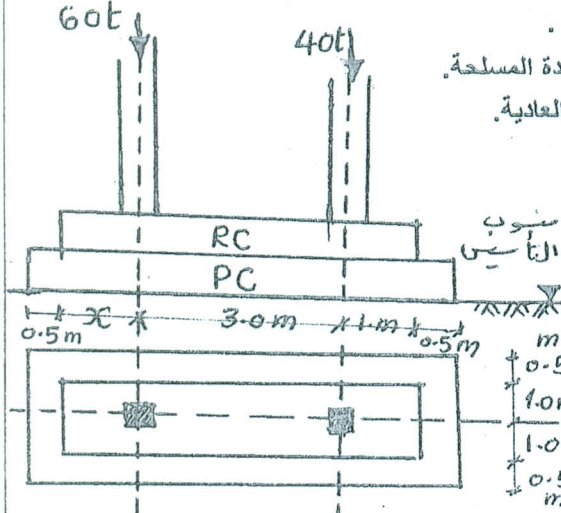 60t
40t
دة المسلحة.
العادية.
RC
منسوب
التأسيس
PC
0.5m x 3.0m 1m 0.5m
m
0.5
1.0
1.0
0.5
m